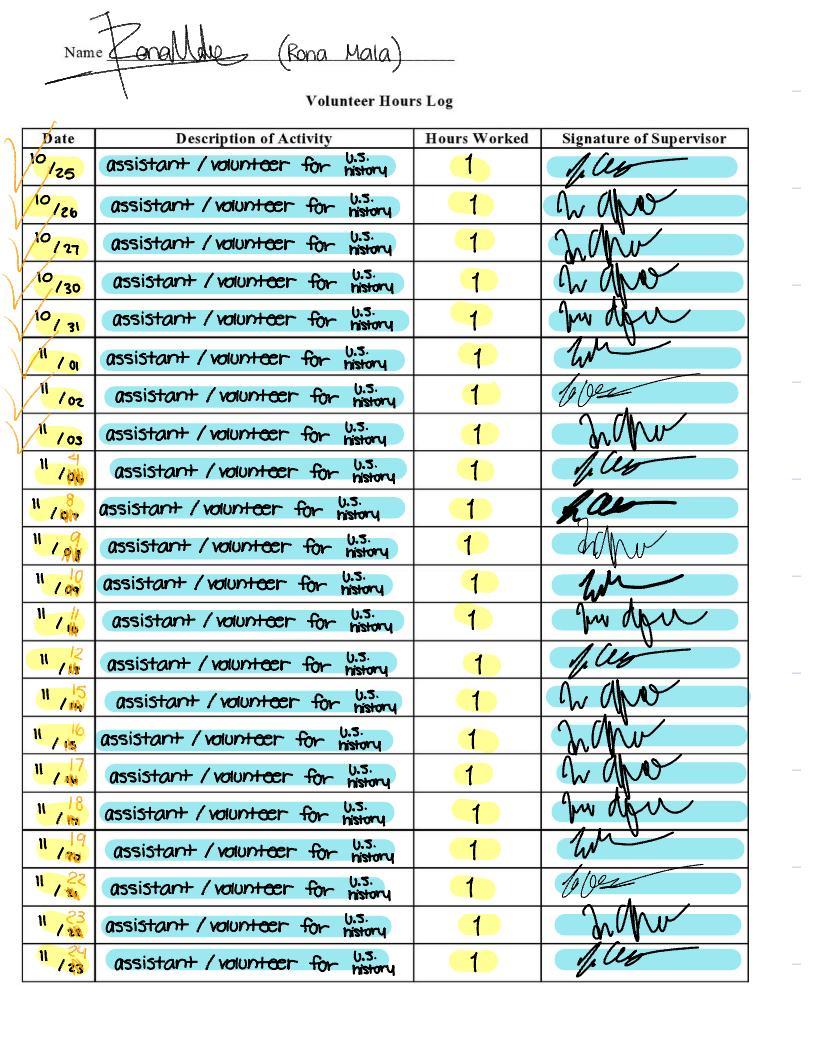 Name Rona Mala (Rona Mala)
Volunteer Hours Log
Date Description of Activity Hours Worked Signature of Supervisor
10/25 assistant / volunteer for U.S. history 1
10/26 assistant / volunteer for U.S. history 1
10/27 assistant / volunteer for U.S. history 1
10/30 assistant / volunteer for U.S. history 1
10/31 assistant / volunteer for U.S. history 1
11/01 assistant / volunteer for U.S. history 1
11/02 assistant / volunteer for U.S. history 1
11/03 assistant / volunteer for U.S. history 1
11/4 assistant / volunteer for U.S. history 1
11/8 assistant / volunteer for U.S. history 1
11/9 assistant / volunteer for U.S. history 1
11/10 assistant / volunteer for U.S. history 1
11/11 assistant / volunteer for U.S. history 1
11/12 assistant / volunteer for U.S. history 1
11/15 assistant / volunteer for U.S. history 1
11/16 assistant / volunteer for U.S. history 1
11/17 assistant / volunteer for U.S. history 1
11/18 assistant / volunteer for U.S. history 1
11/19 assistant / volunteer for U.S. history 1
11/22 assistant / volunteer for U.S. history 1
11/23 assistant / volunteer for U.S. history 1
11/24 assistant / volunteer for U.S. history 1